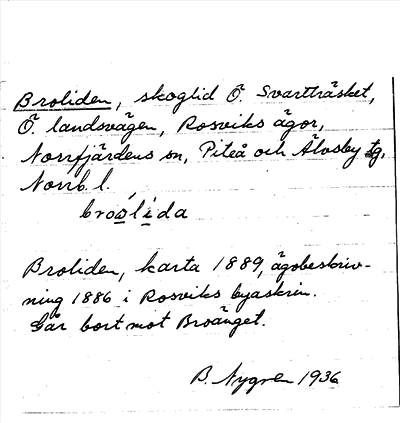 Broliden, skoglid Ö. Svartträsket,
Ö. landsvägen, Rosviks ägor,
Norrfjärdens sn, Piteå och Älvsby tg,
Norrb. l.
broslída
Broliden, karta 1889, ägobeskriv-
ning 1886 i Rosviks byaskrin.
Går bort mot Broänget.
B. Nygren 1936